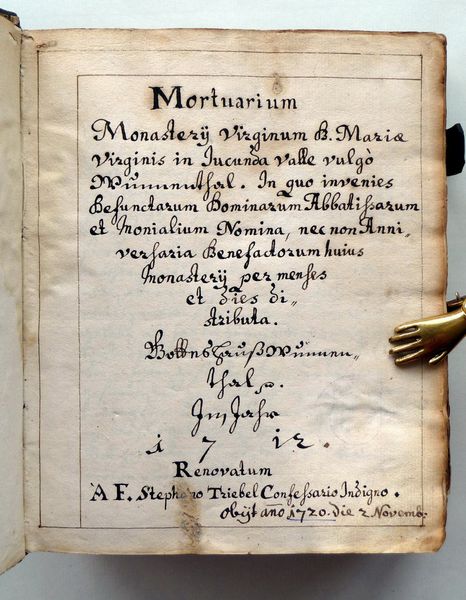 Mortuarium
Monasterÿ Virginum B. Mariæ
Virginis in Jucunda Valle vulgò
Wŭnnenthal. In quo invenies
Defunctarum Dominarum Abbatißarum
et Monialium Nomina, nec non Anni-
versaria Benefactorum huius
Monasterÿ per menses
et dies di„
stributa.
Gottnshauß Wŭnnen„
thal
Im Jahr
1 7 12.
Renovatum
A F. Stephano Triebel Confessario Indigno.
obÿt ano 1720. die 2 Novemb: